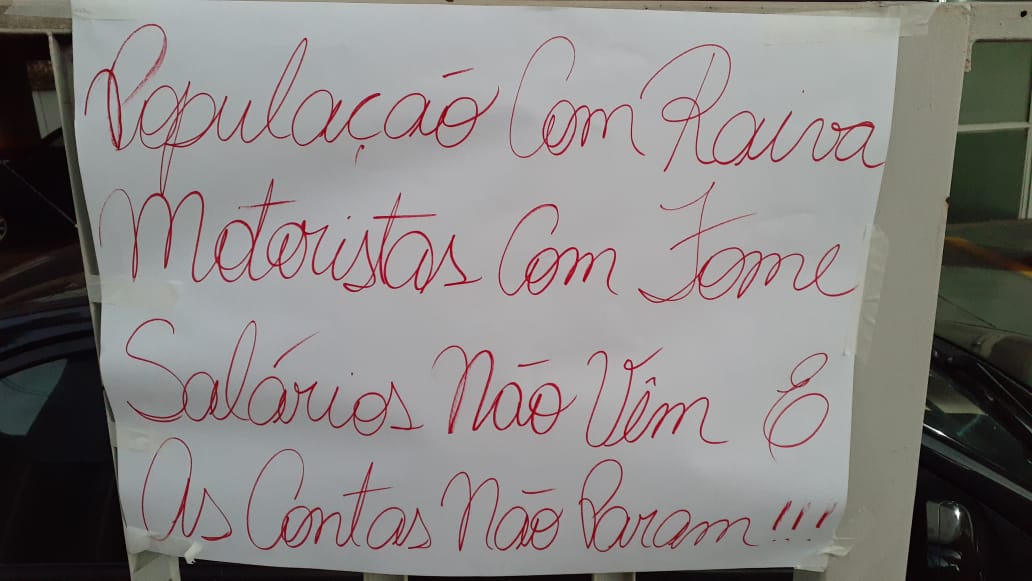 População Com Raiva
Motoristas Com Fome
Salários Não Vêm E
As Contas Não Param!!!